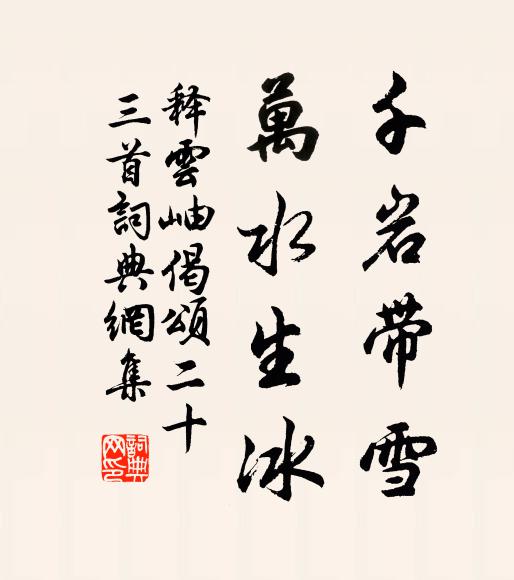 千岩带雪
萬水生冰
释雲岫偈頌二十
三首詞典網集
詞典网印